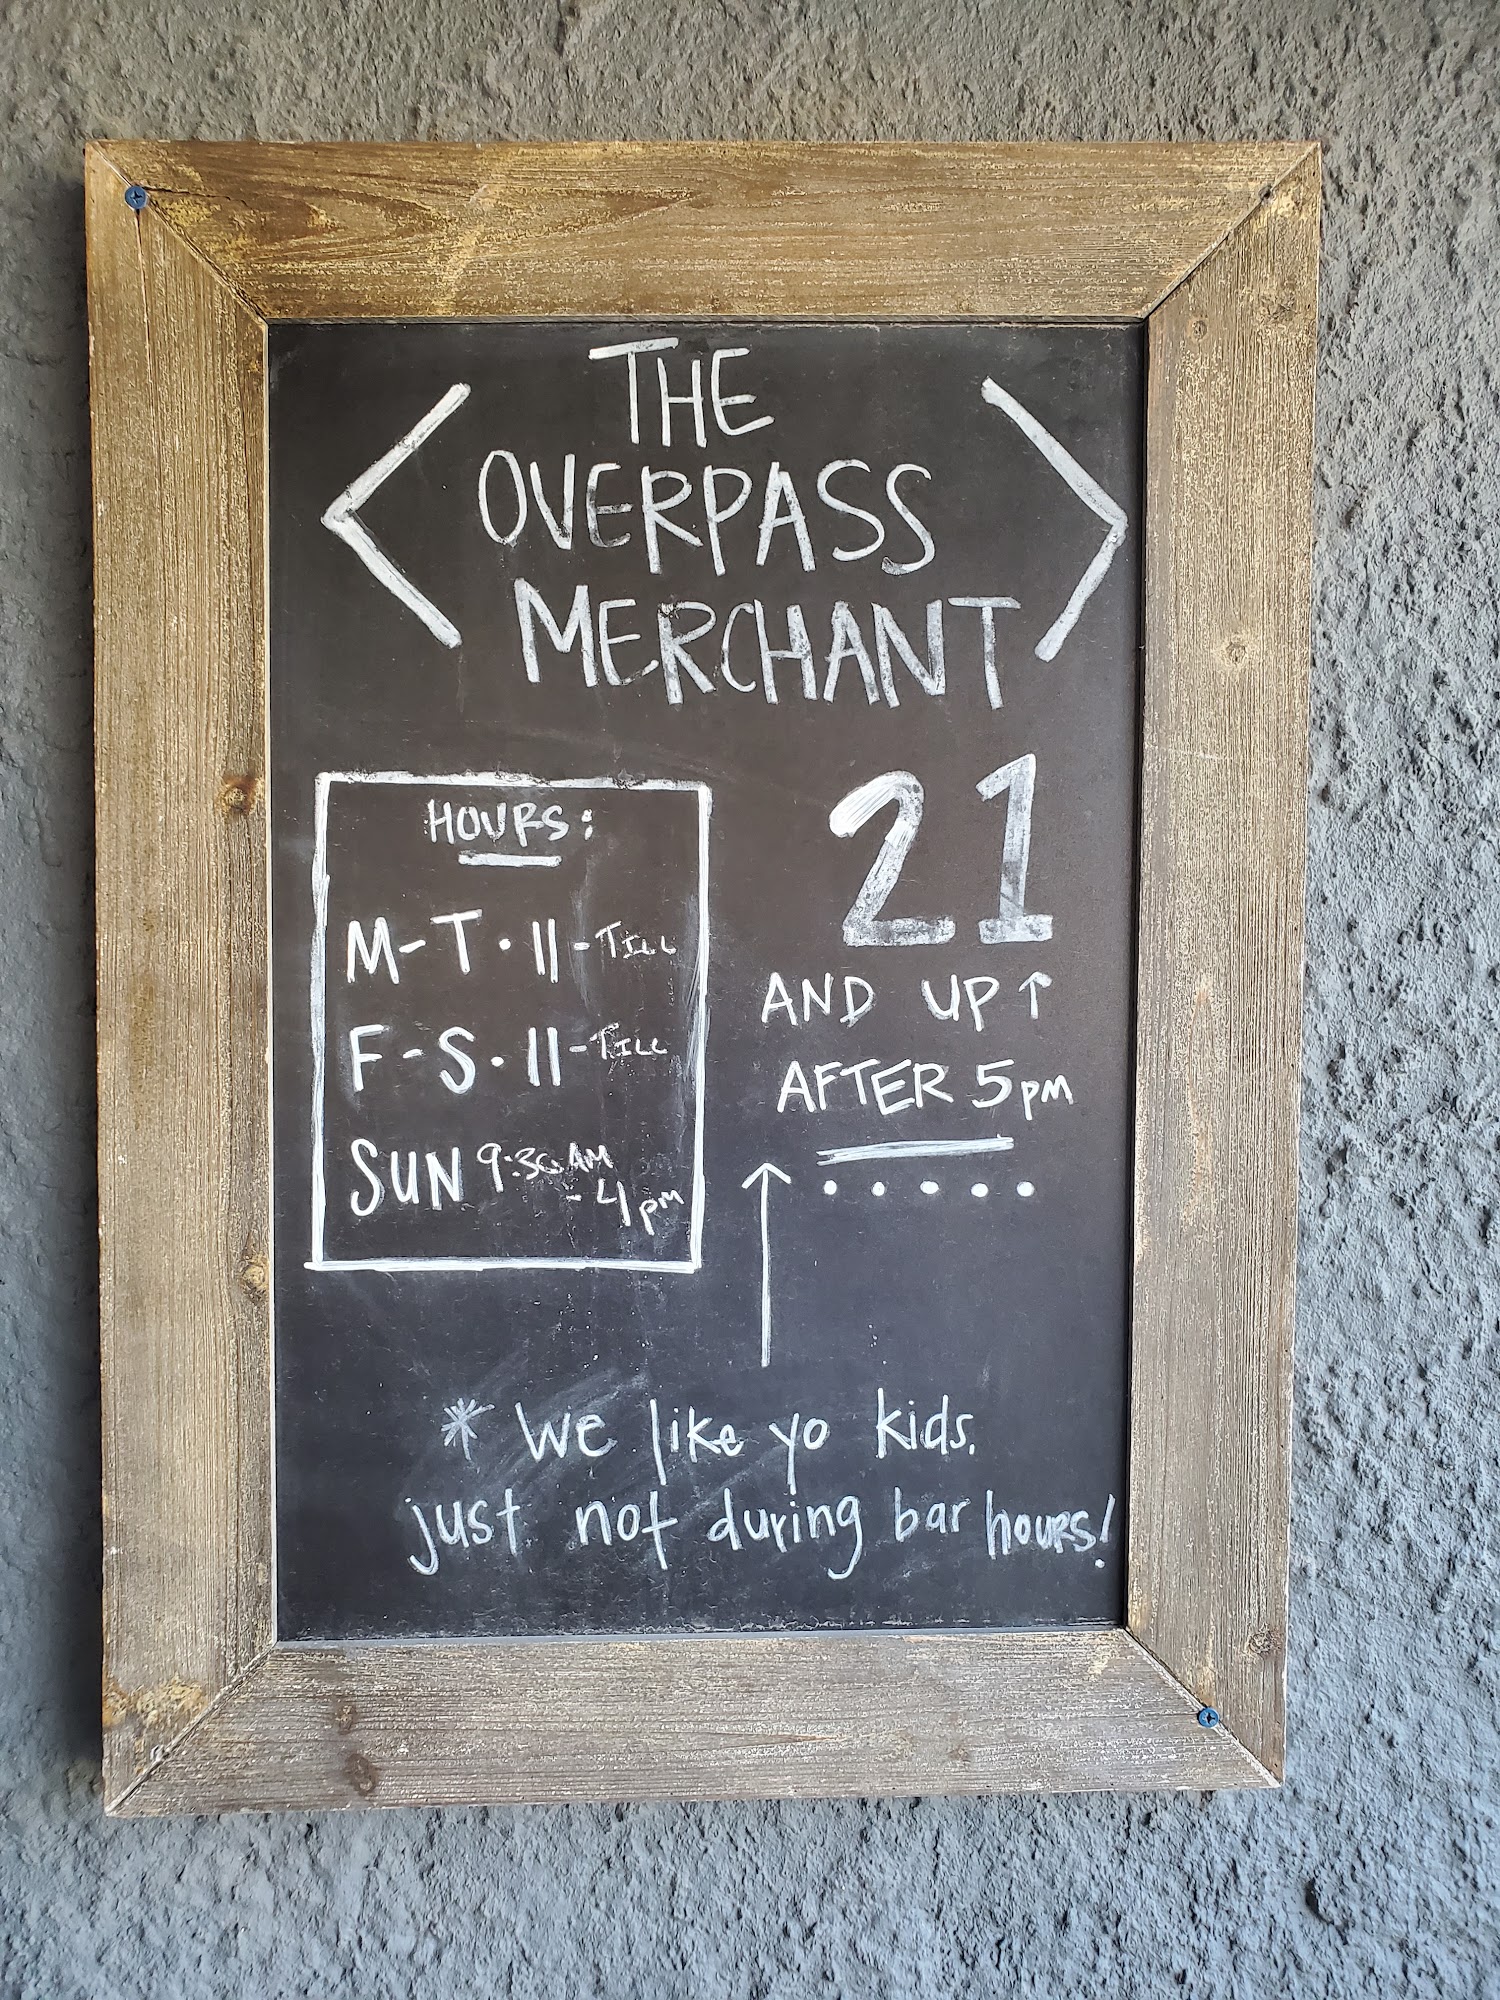 THE
OVERPASS
MERCHANT
HOURS:
M-T · 11-TILL
F-S · 11-TILL
SUN 9:30AM
-4pm
21
AND UP↑
AFTER 5pm
* We like yo kids.
just not during bar hours!